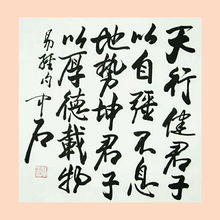 天行健君子
以自強不息
地勢坤君子
以厚德載物
易經句中石